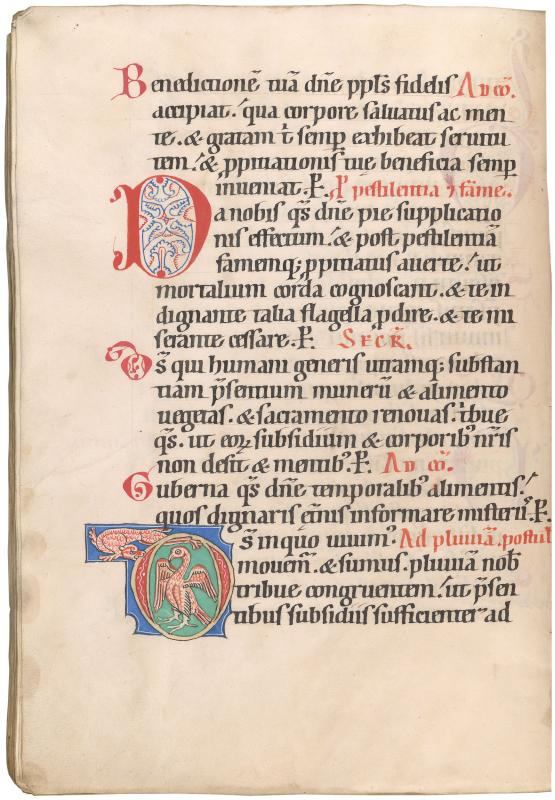 Benedictionē tuā dn̄e ppl̄s fidelis Ad cō.
accipiat. qua corpore saluatus ac men
te. & gratam t̄ semp exhibeat seruitu
tem. & ppitiationis tue beneficia semp
inueniat. P. P pestilentia ⁊ fame.
Da nobis qs̄ dn̄e pie supplicatio
nis effectum. & post pestilentiā
famemq; ppitiatus auerte. ut
mortalium corda cognoscant. & te in
dignante talia flagella pdire. & te mi
serante cessare. P. SECR̄.
Ds̄ qui humani generis utramq; substan
tiam p̄sentium munerū & alimento
uegetas. & sacramento renouas. tribue
qs̄. ut eoꝝ subsidium & corporib; nr̄is
non desit & mentib;. P. Ad cō.
Guberna qs̄ dn̄e temporalib; alimentis.
quos dignaris et̄nis informare misteriis. P.
Ds̄ in quo uiuim; Ad pluuiā. postul
mouem̄. & sumus. pluuiā nob̄
tribue congruentem. ut p̄sen
tibus subsidiis sufficienter ad